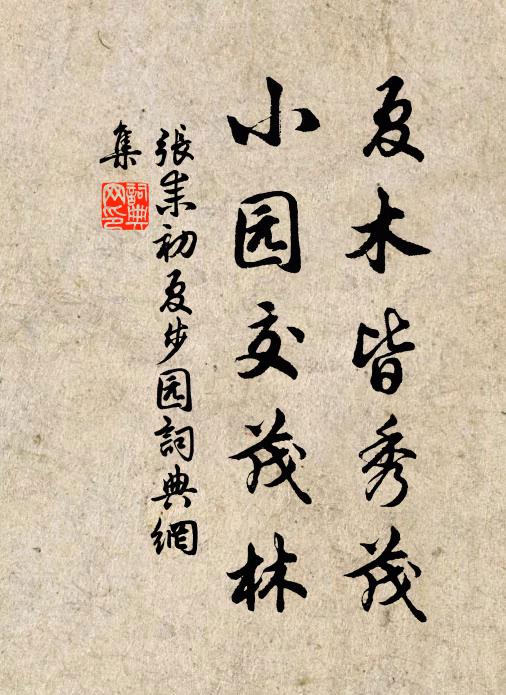 夏木皆秀茂
小园交茂林
張耒初夏步园詞典網
集
詞典
网印